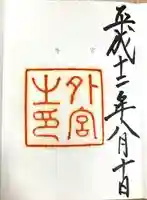 平成十二年八月十日
外宮
之印